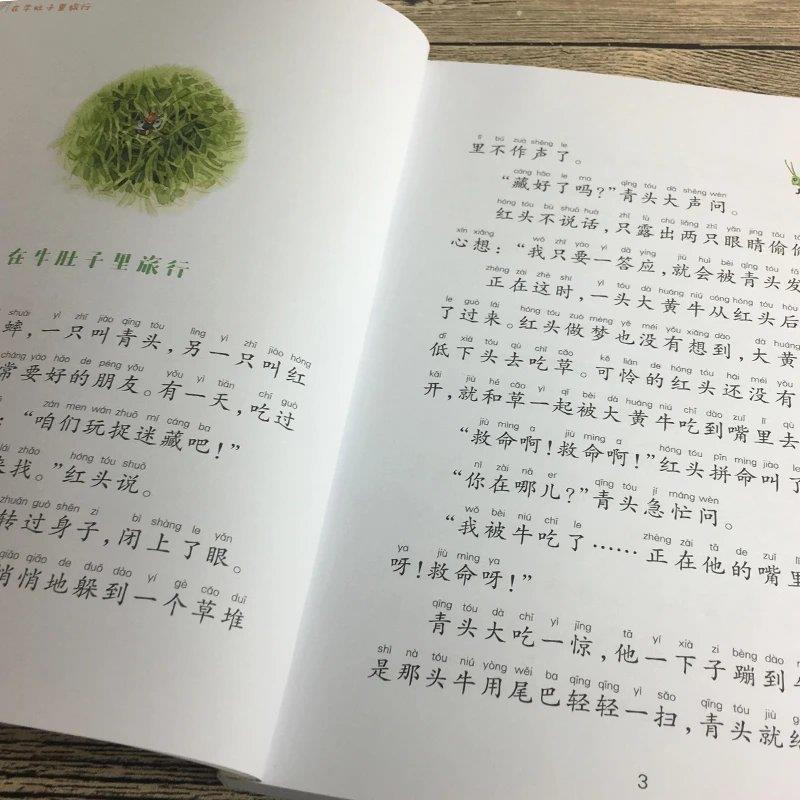 在牛肚子里旅行
在牛肚子里旅行
shuài yì zhī jiào qīng tóu lìng yì zhī jiào hóng
蟀，一只叫青头，另一只叫红
cháng yào hǎo de péng yǒu yǒu yì tiān chī guò
常要好的朋友。有一天，吃过
zán men wán zhuō mí cáng ba
：“咱们玩捉迷藏吧！”
lái zhǎo hóng tóu shuō
来找。”红头说。
zhuǎn guò shēn zi bì shàng le yǎn
转过身子，闭上了眼。
qiāo qiāo de duǒ dào yí gè cǎo duī
悄悄地躲到一个草堆
lǐ bú zuò shēng le
里不作声了。
cáng hǎo le ma qīng tóu dà shēng wèn
“藏好了吗？”青头大声问。
hóng tóu bù shuō huà zhǐ lù chū liǎng zhī yǎn jing tōu
红头不说话，只露出两只眼睛偷偷
xīn xiǎng wǒ zhǐ yào yì dā yìng jiù huì bèi qīng tóu fā
心想：“我只要一答应，就会被青头发
zhèng zài zhè shí yì tóu dà huáng niú cóng hóng tóu hòu
正在这时，一头大黄牛从红头后
le guò lái hóng tóu zuò mèng yě méi yǒu xiǎng dào dà huáng
了过来。红头做梦也没有想到，大黄
dī xià tóu qù chī cǎo kě lián de hóng tóu hái méi yǒu
低下头去吃草。可怜的红头还没有
kāi jiù hé cǎo yì qǐ bèi dà huáng niú chī dào zuǐ lǐ qù
开，就和草一起被大黄牛吃到嘴里去
jiù mìng a jiù mìng a hóng tóu pīn mìng jiào le
“救命啊！救命啊！”红头拼命叫了
nǐ zài nǎ er qīng tóu jí máng wèn
“你在哪儿？”青头急忙问。
wǒ bèi niú chī le zhèng zài tā de zuǐ lǐ
“我被牛吃了……正在他的嘴里
ya jiù mìng ya
呀！救命呀！”
qīng tóu dà chī yì jīng tā yí xià zi bèng dào
青头大吃一惊，他一下子蹦到
shì nà tóu niú yòng wěi ba qīng qīng yì sǎo qīng tóu jiù
是那头牛用尾巴轻轻一扫，青头就给
3